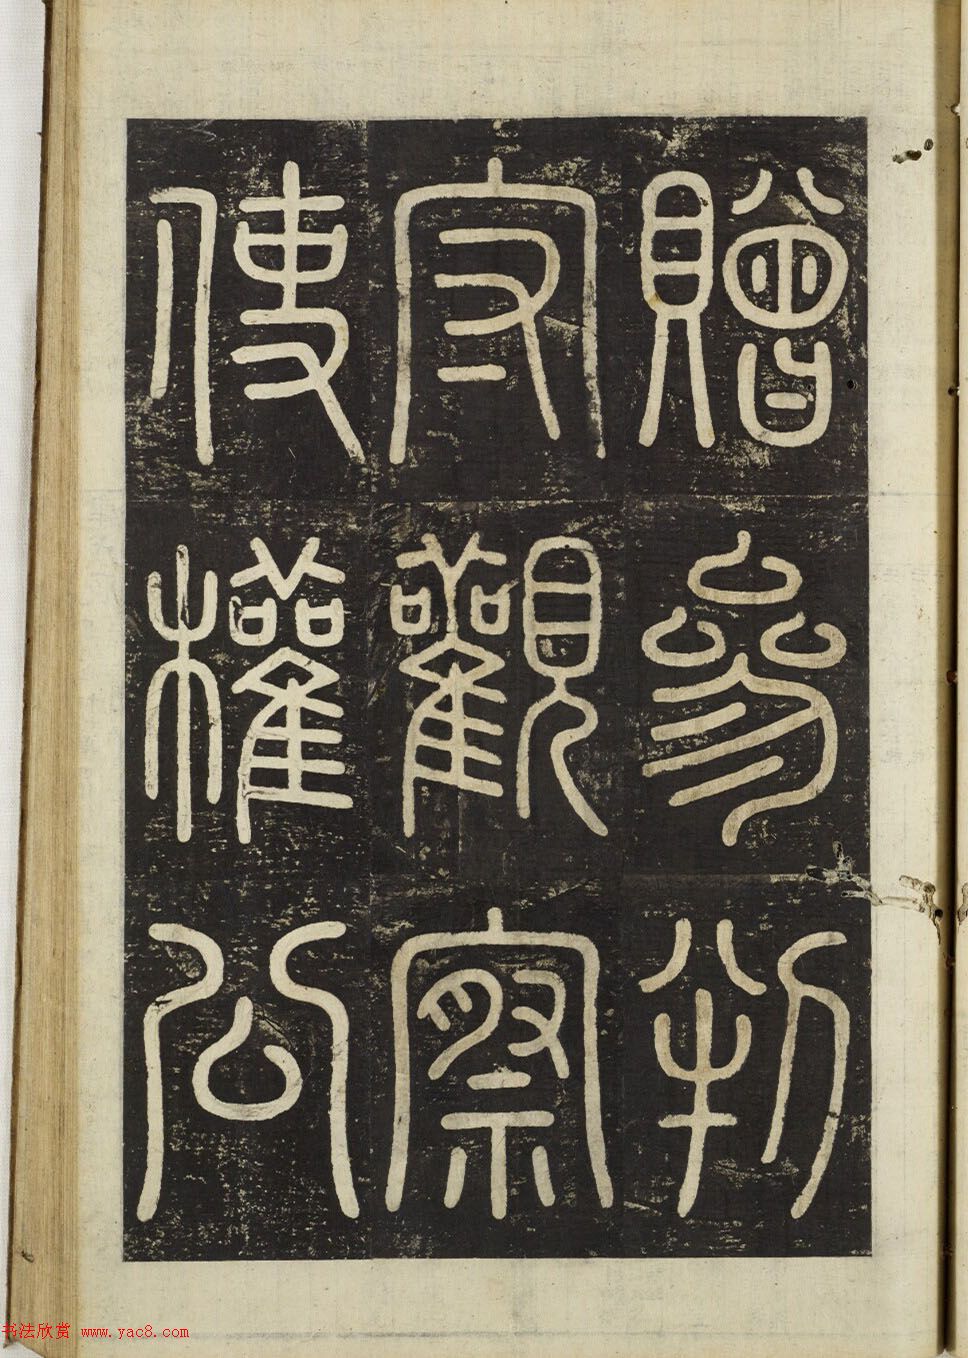 贈參判
守觀察
使權公
书法欣赏 www.yac8.com